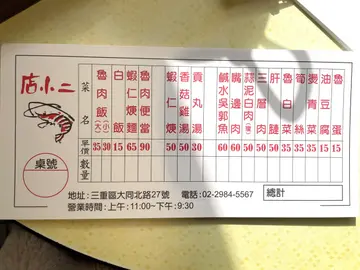 店小二
桌號
菜名
單價
數量
魯肉飯(大)(小) 35 30
白飯 15
蝦仁焿麵 65
魯肉便當 90
蝦仁焿 50
香菇雞湯 50
貢丸湯 30
鹹水吳郭魚 60
嘴邊肉 60
蒜泥白肉
三層肉 50
肝
魯白菜 35
筍絲 35
燙青菜
油豆腐 15
蛋 15
地址:三重區大同北路27號 電話:02-2984-5567
營業時間:上午:11:00~下午:9:30
總計